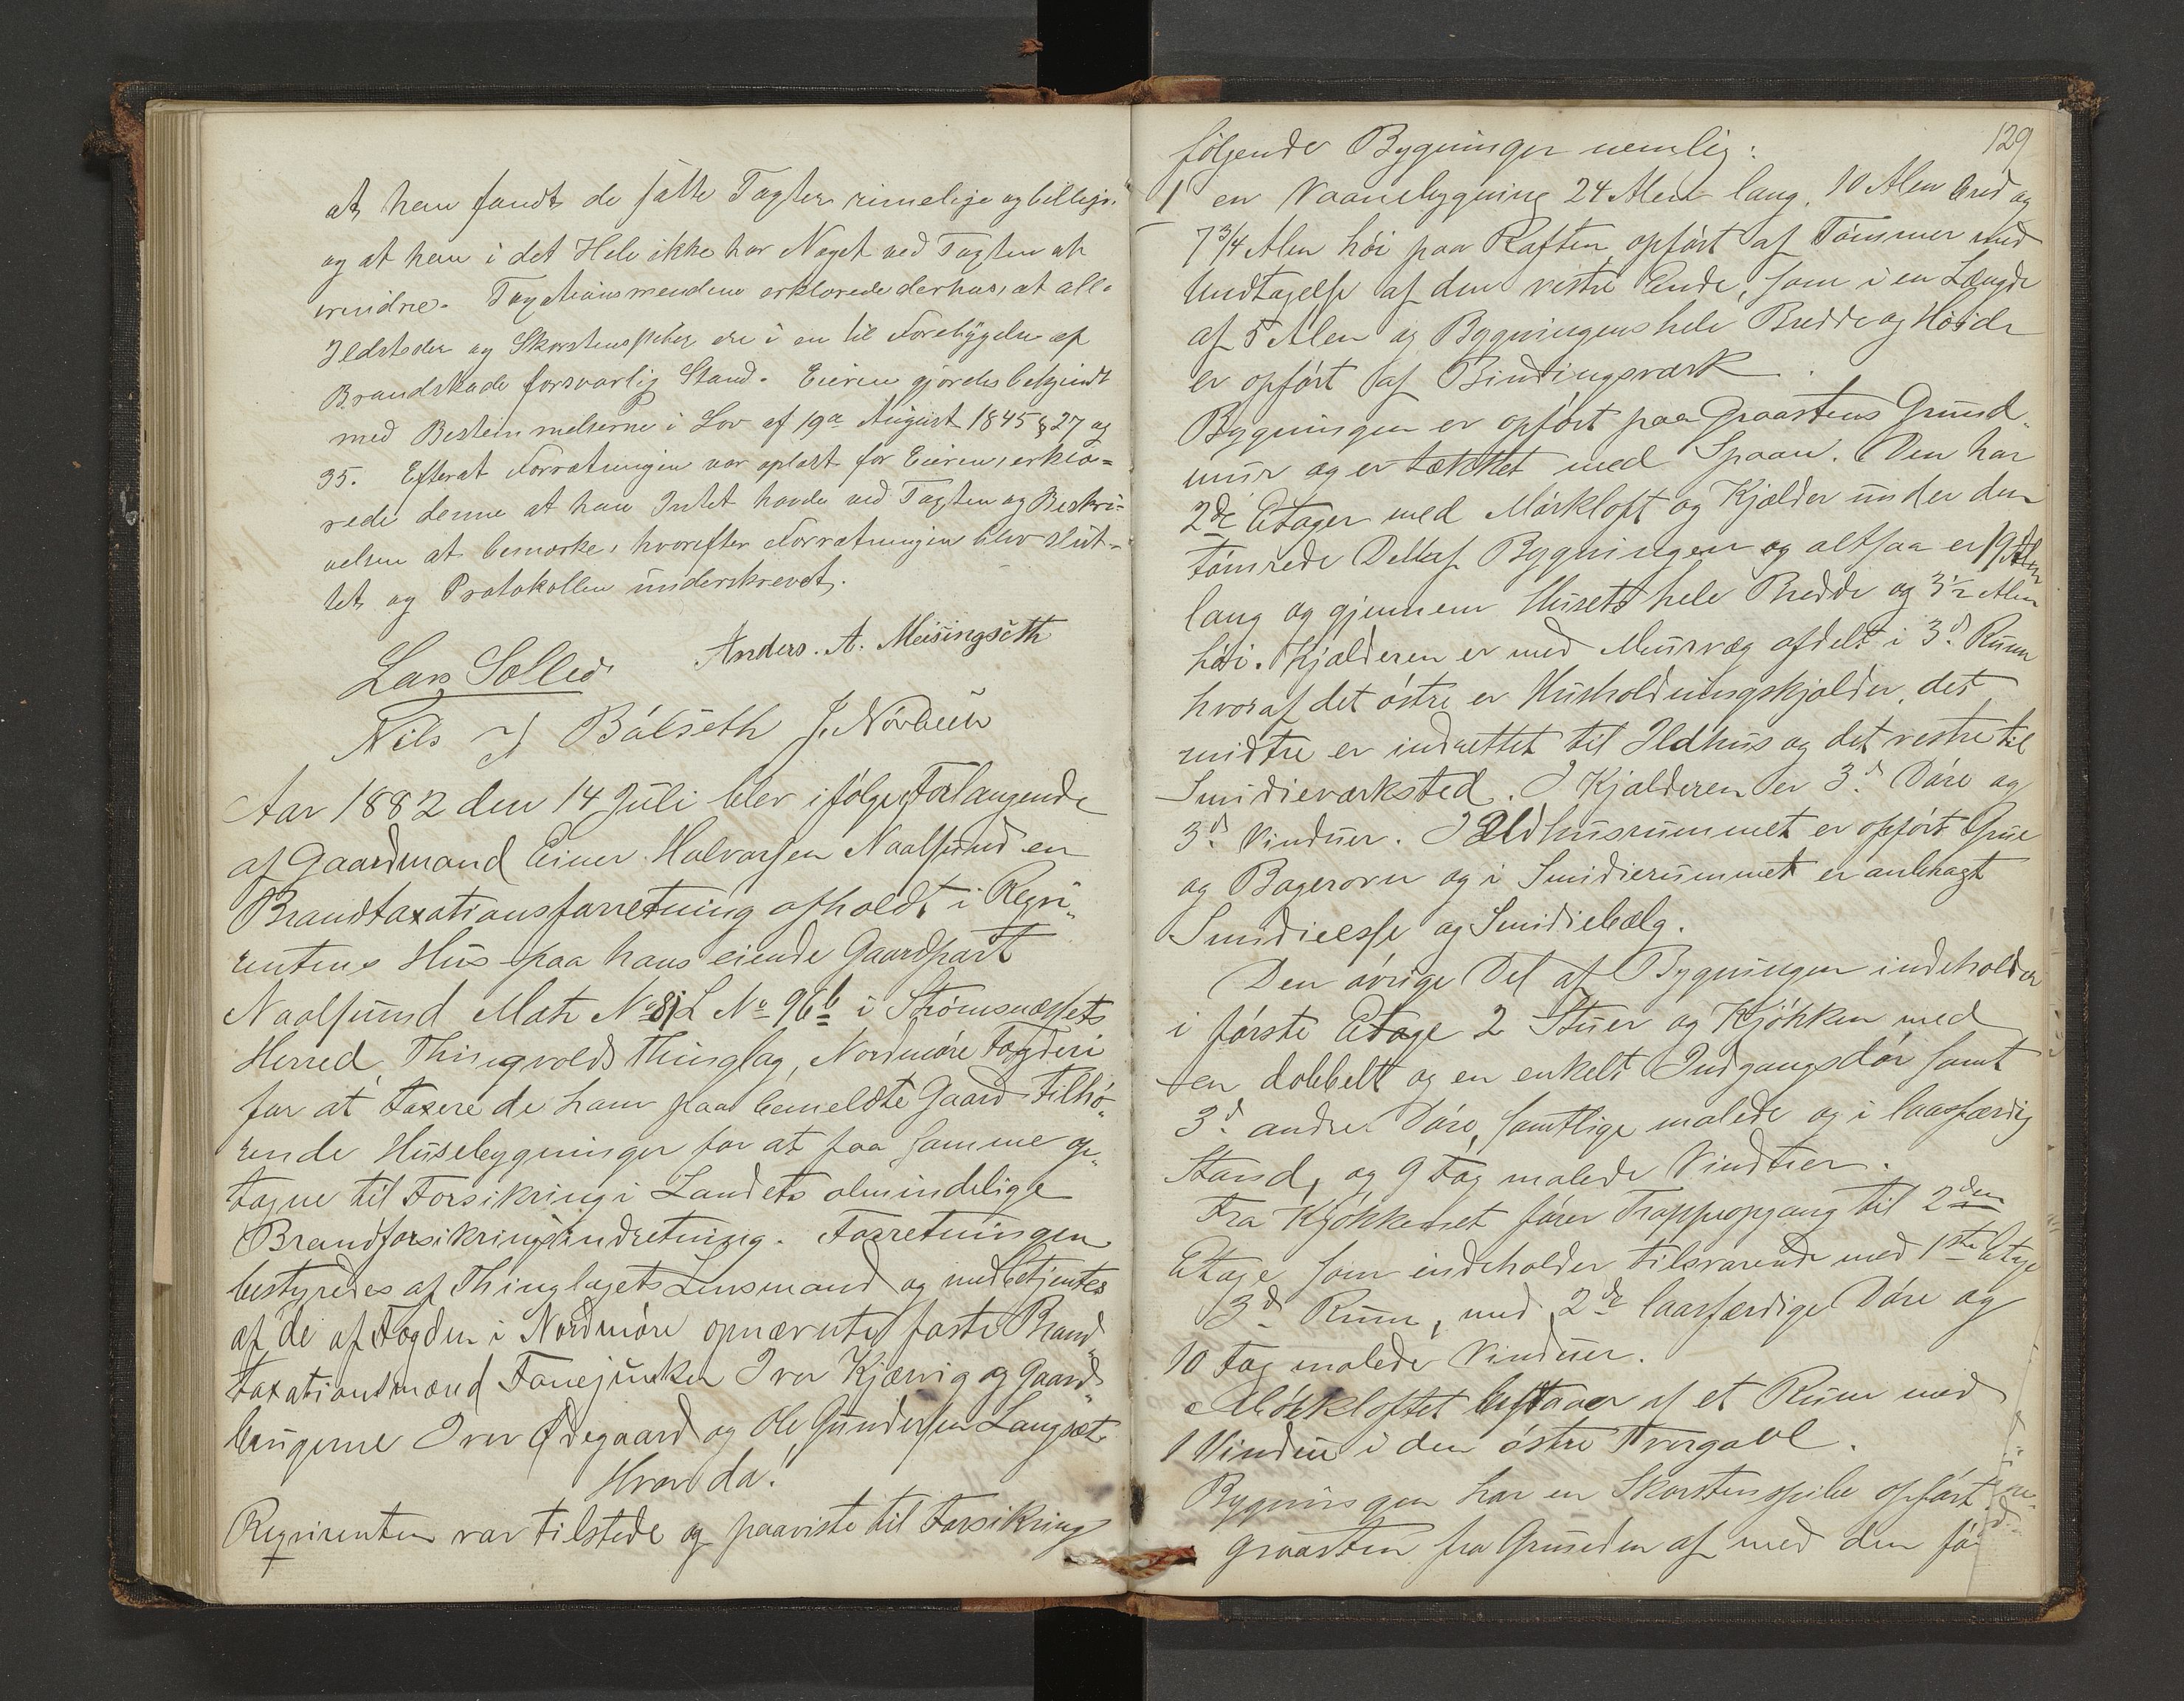 at han fandt de satte Taxter rimelige og billige
og at han i det Hele ikke har Noget ved Taxten at
erindre. Taxationsmændene erklærede derhos, at alle
Ildsteder og Skorstenspiber ere i en til Forebyggelse af
Brandskade forsvarlig Stand. Eieren gjordes bekjendt
med Bestemmelserne i Lov af 19de August 1845 § 27 og
35. Efterat Forretningen var oplæst for Eieren, erklæ=
rede denne at han Intet havde ved Taxten og Beskri=
velsen at bemærke, hvorefter Forretningen blev slut=
tet og Protokollen underskrevet.
Lars Solled Anders. A. Meisingseth
Nils J Bölseth J. Nörbech
Aar 1882 den 14 Juli blev ifølge Forlangende
af Gaardmand Einer Halvorsen Naalsund en
Brandtaxationsforretning afholdt i Reqvi„
rentens Hus paa hans eiende Gaardpart
Naalsund Matr No 81 L No 96b i Strømsnæssets
Herred, Thingvolds Thinglag, Nordmøre Fogderi
for at taxere de ham paa bemeldte Gaard tilhø„
rende Husebygninger for at faa samme op„
tagne til Forsikring i Landets almindelige
Brandforsikringsindretning. Forretningen
bestyredes af Thinglagets Lensmand og medbetjentes
af de af Fogden i Nordmøre opnævnte faste Brand„
taxationsmænd Fanejunker Iver Kjærvig og Gaard„
brugerne Iver Ødegaard og Ole Gundersen Langset
Hvor da:
Reqvirenten var tilstede og paaviste til Forsikring
129
følgende Bygninger nemlig:
1 en Vaanebygning 24 Alen lang, 10 Alen bred og
7 3/4 Alen høi paa Raften, opført af Tømmer med
Undtagelse af den vestre Ende, som i en Længde
af 5 Alen og Bygningens hele Bredde og Høide
er opført af Bindingsværk.
Bygningen er opført paa Graastens Grund„
mur og er tækket med Spaan. Den har
2de Etager med Mørkloft og Kjælder under den
tømrede Del af Bygningen og altsaa er 19 Alen
lang og gjennem Husets hele Bredde og 3 1/2 Alen
høi. Kjælderen er med Murvæg afdelt i 3de Rum
hvoraf det østre er Husholdningskjælder, det
midtre er indrettet til Ildhus og det vestre til
Smidieværksted. I Kjælderen er 3de Døre og
3de Vinduer. I Ildhusrummet er opført Grue
og Bagerovn og i Smidierummet er anbragt
Smidieesse og Smidiebælg.
Den øvrige Del af Bygningen indeholder
i første Etage 2 Stuer og Kjøkken med
en dobbelt og en enkelt Indgangsdør samt
3de andre Døre, samtlige malede og i laasfærdig
Stand, og 9 Fag malede Vinduer.
Fra Kjøkkenet fører Trappeopgang til 2den
Etage som indeholder tilsvarende med 1ste Etage
3de Rum, med 2de laasfærdige Døre og
10 Fag malede Vinduer.
Mørkloftet bestaaer af et Rum med
1 Vindu i den østre Tvergavl.
Bygningen har en Skorstenspibe opført
graasten fra Grunden af med den fø